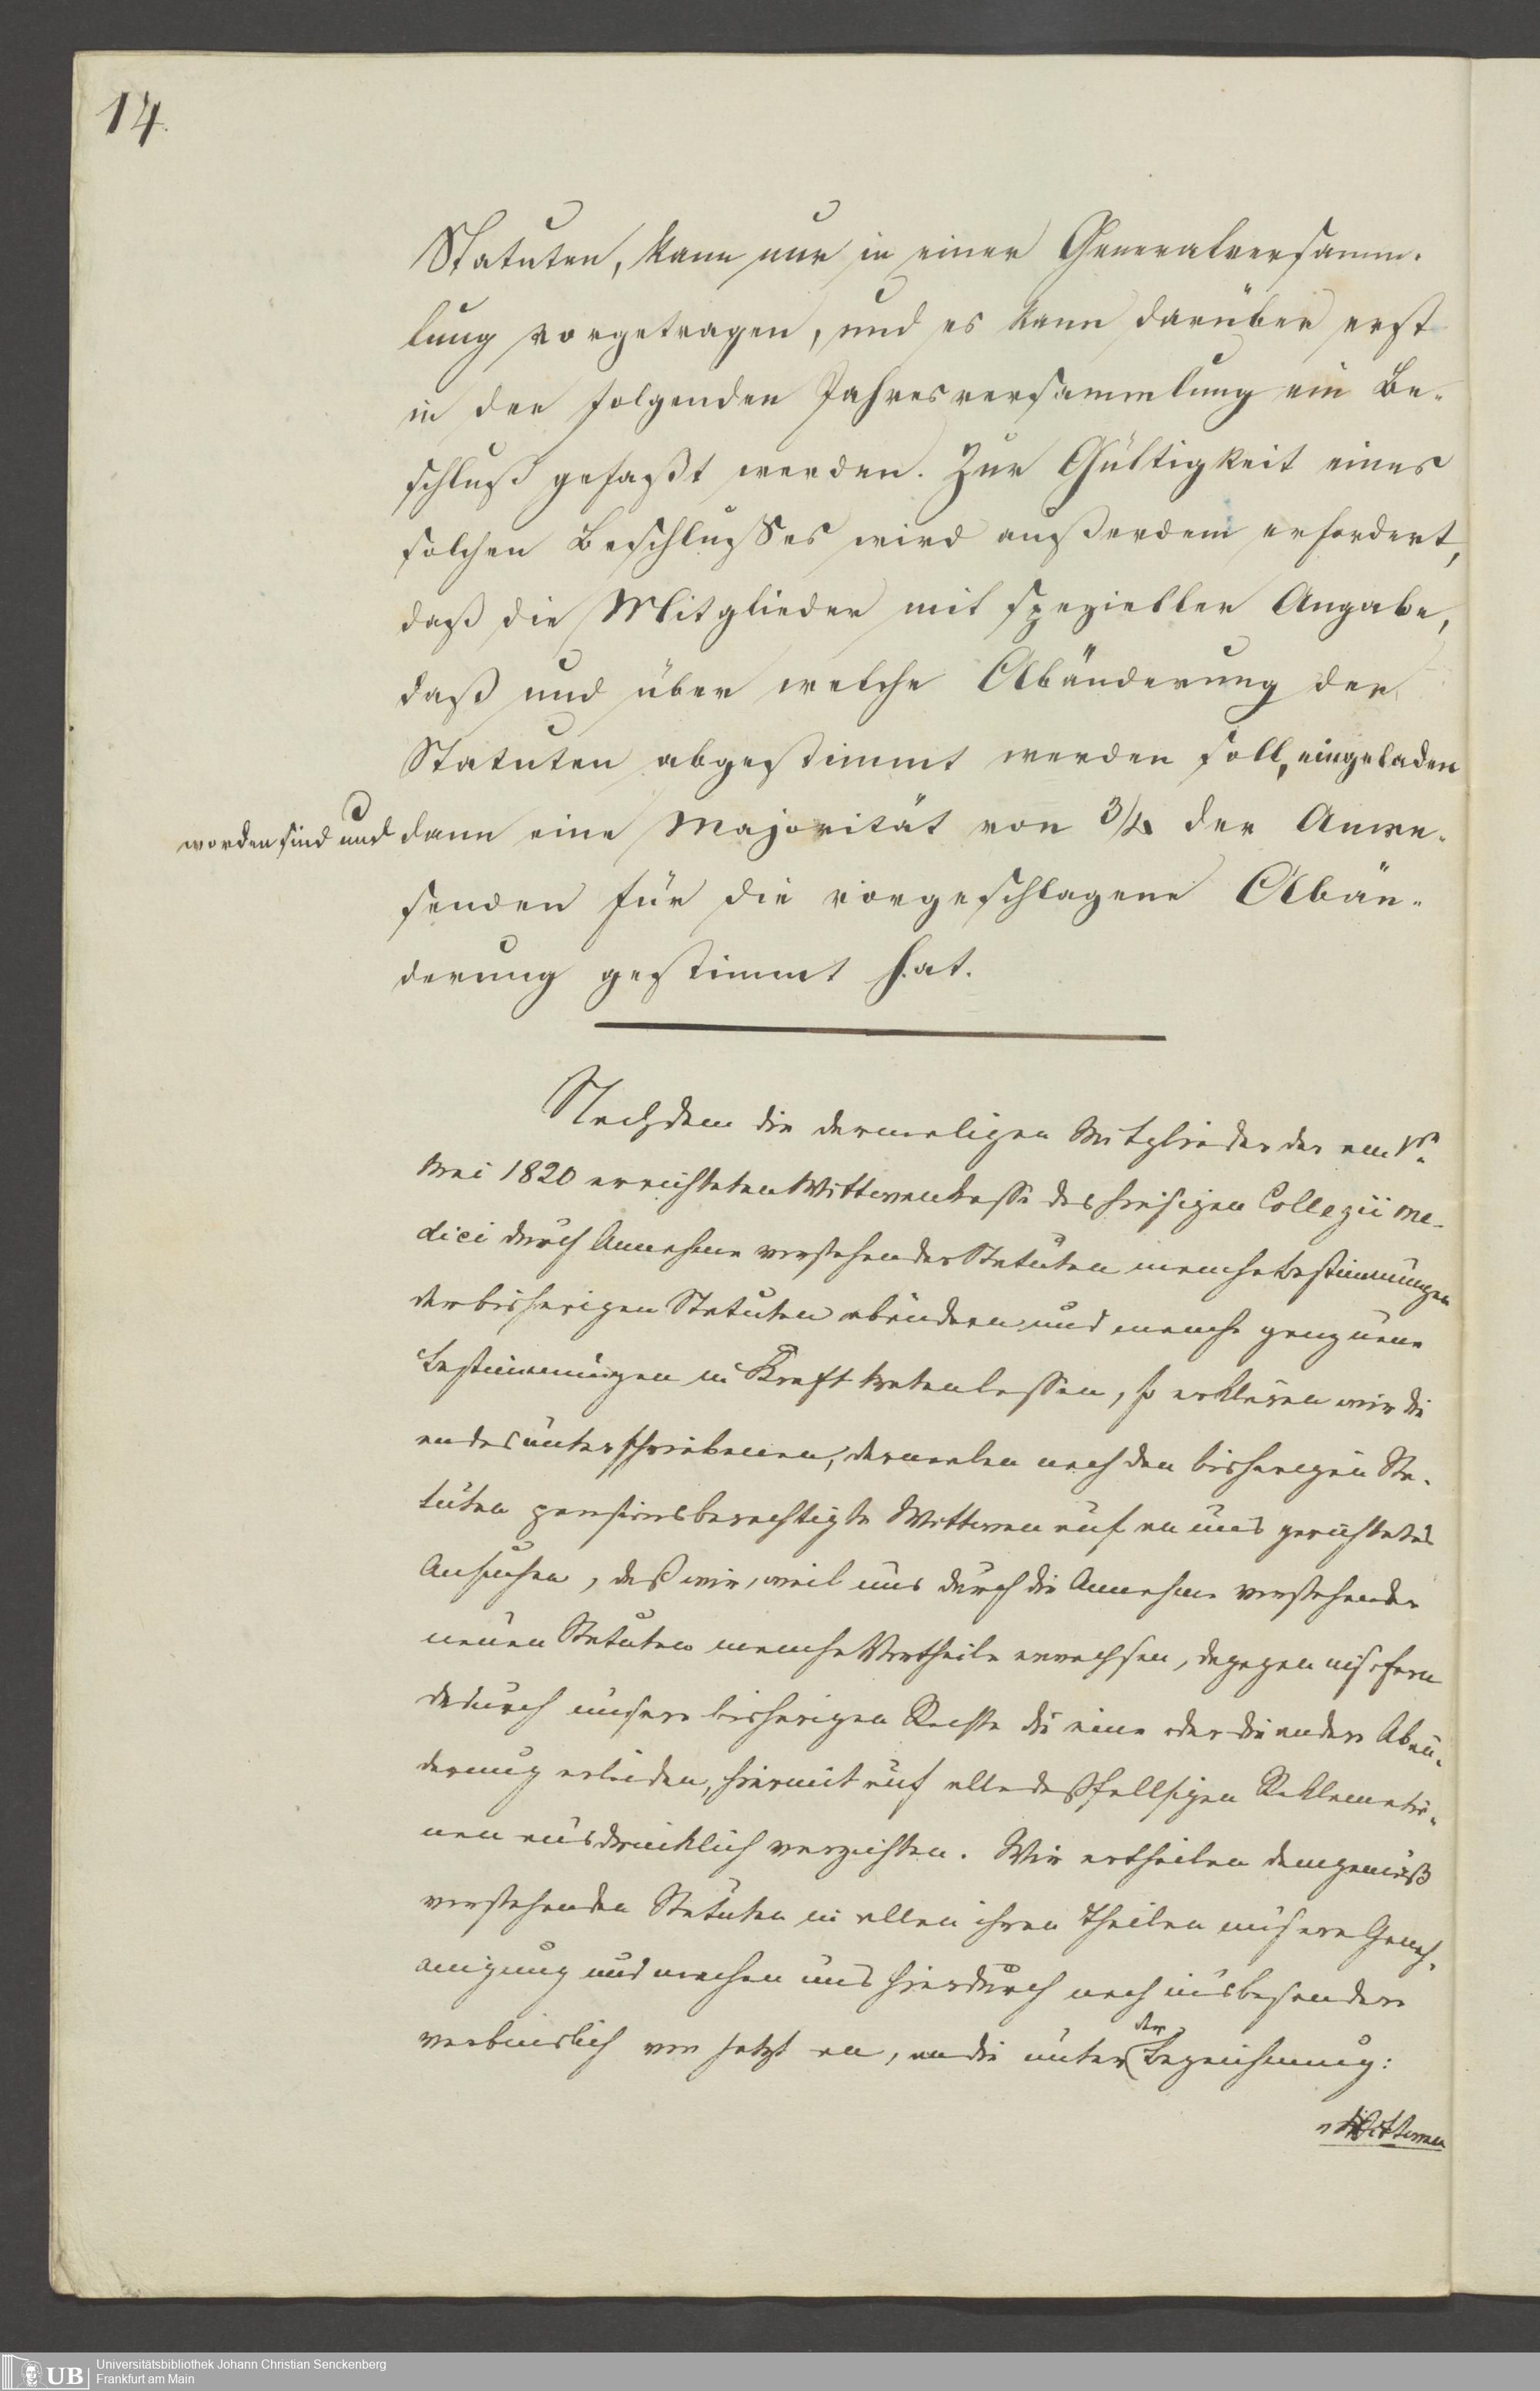 14.
Statuten, kann nur in einer Generalversamm-
lung vorgetragen, und es kann darüber erst
in der folgenden Jahresversammlung ein Be-
schluß gefaßt werden. Zur Gültigkeit eines
solchen Beschlusses wird außerdem erfordert,
daß die Mitglieder mit spezieller Angabe,
daß und über welche Abänderung der
Statuten abgestimmt werden soll, eingeladen
worden sind und dann eine Majorität von 3/4 der Anwe-
senden für die vorgeschlagene Abän-
derung gestimmt hat.
Nachdem die dermaligen Mitglieder der am 1n
Mai 1820 errichteten Wittwenkasse des hiesigen Collegii me-
dici durch Annahme vorstehender Statuten manche Bestimmungen
der bisherigen Statuten abändern und manche ganz neue
Bestimmungen in Kraft treten lassen, so erklären wir die
endesunterschriebenen, dermalen nach den bisherigen Sta-
tuten pensionsberechtigte Wittwen auf an uns gerichtetes
Ansuchen, daß wir, weil uns durch die Annahme vorstehender
neuen Statuten manche Vortheile erwachsen, dagegen insofern
dadurch unsere bisherigen Rechte die eine oder die andere Abän-
derung erleiden, hiermit auf alle deßfallsigen Reklamatio-
nen ausdrücklich verzichten. Wir ertheilen demgemäß
vorstehenden Statuten in allen ihren Theilen unsere Geneh-
migung und machen uns hierdurch noch insbesondere
verbindlich von jetzt an, an die unter der Bezeichnung:
„Wittwen
UB Universitätsbibliothek Johann Christian Senckenberg
Frankfurt am Main